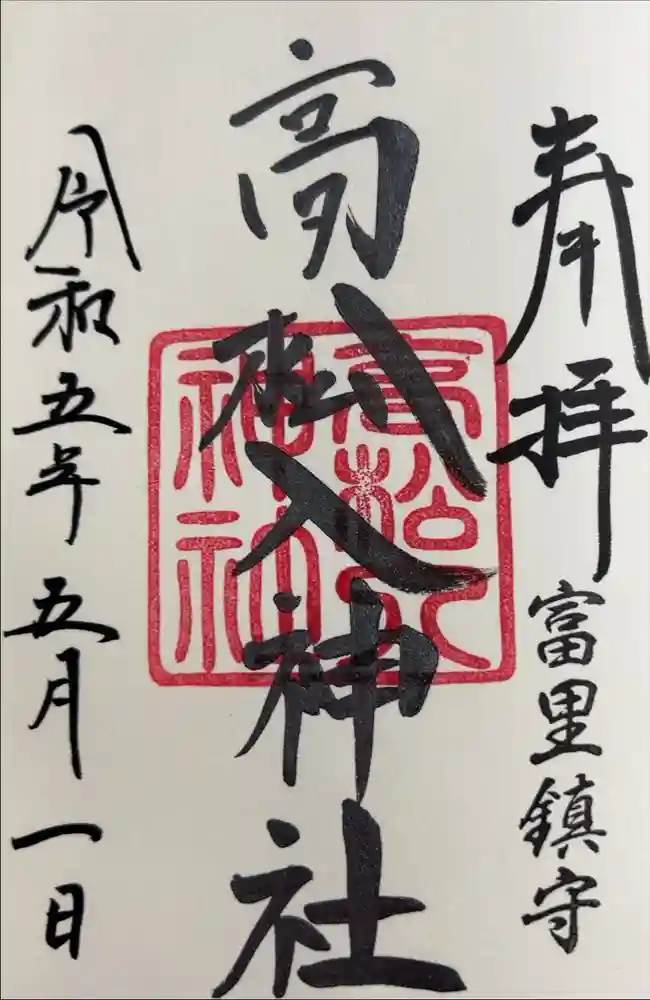 奉拝
富里鎮守
高松入神社
高松入神社
令和五年五月一日